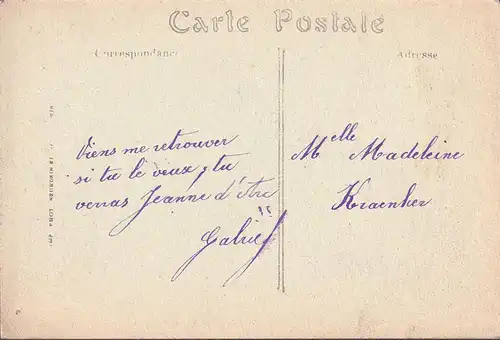 Carte Postale
Correspondance
Adresse
Viens me retrouver
si tu le veux, tu
verras Jeanne d'Arc
!!
Gabriel
Melle Madeleine
Kraenker